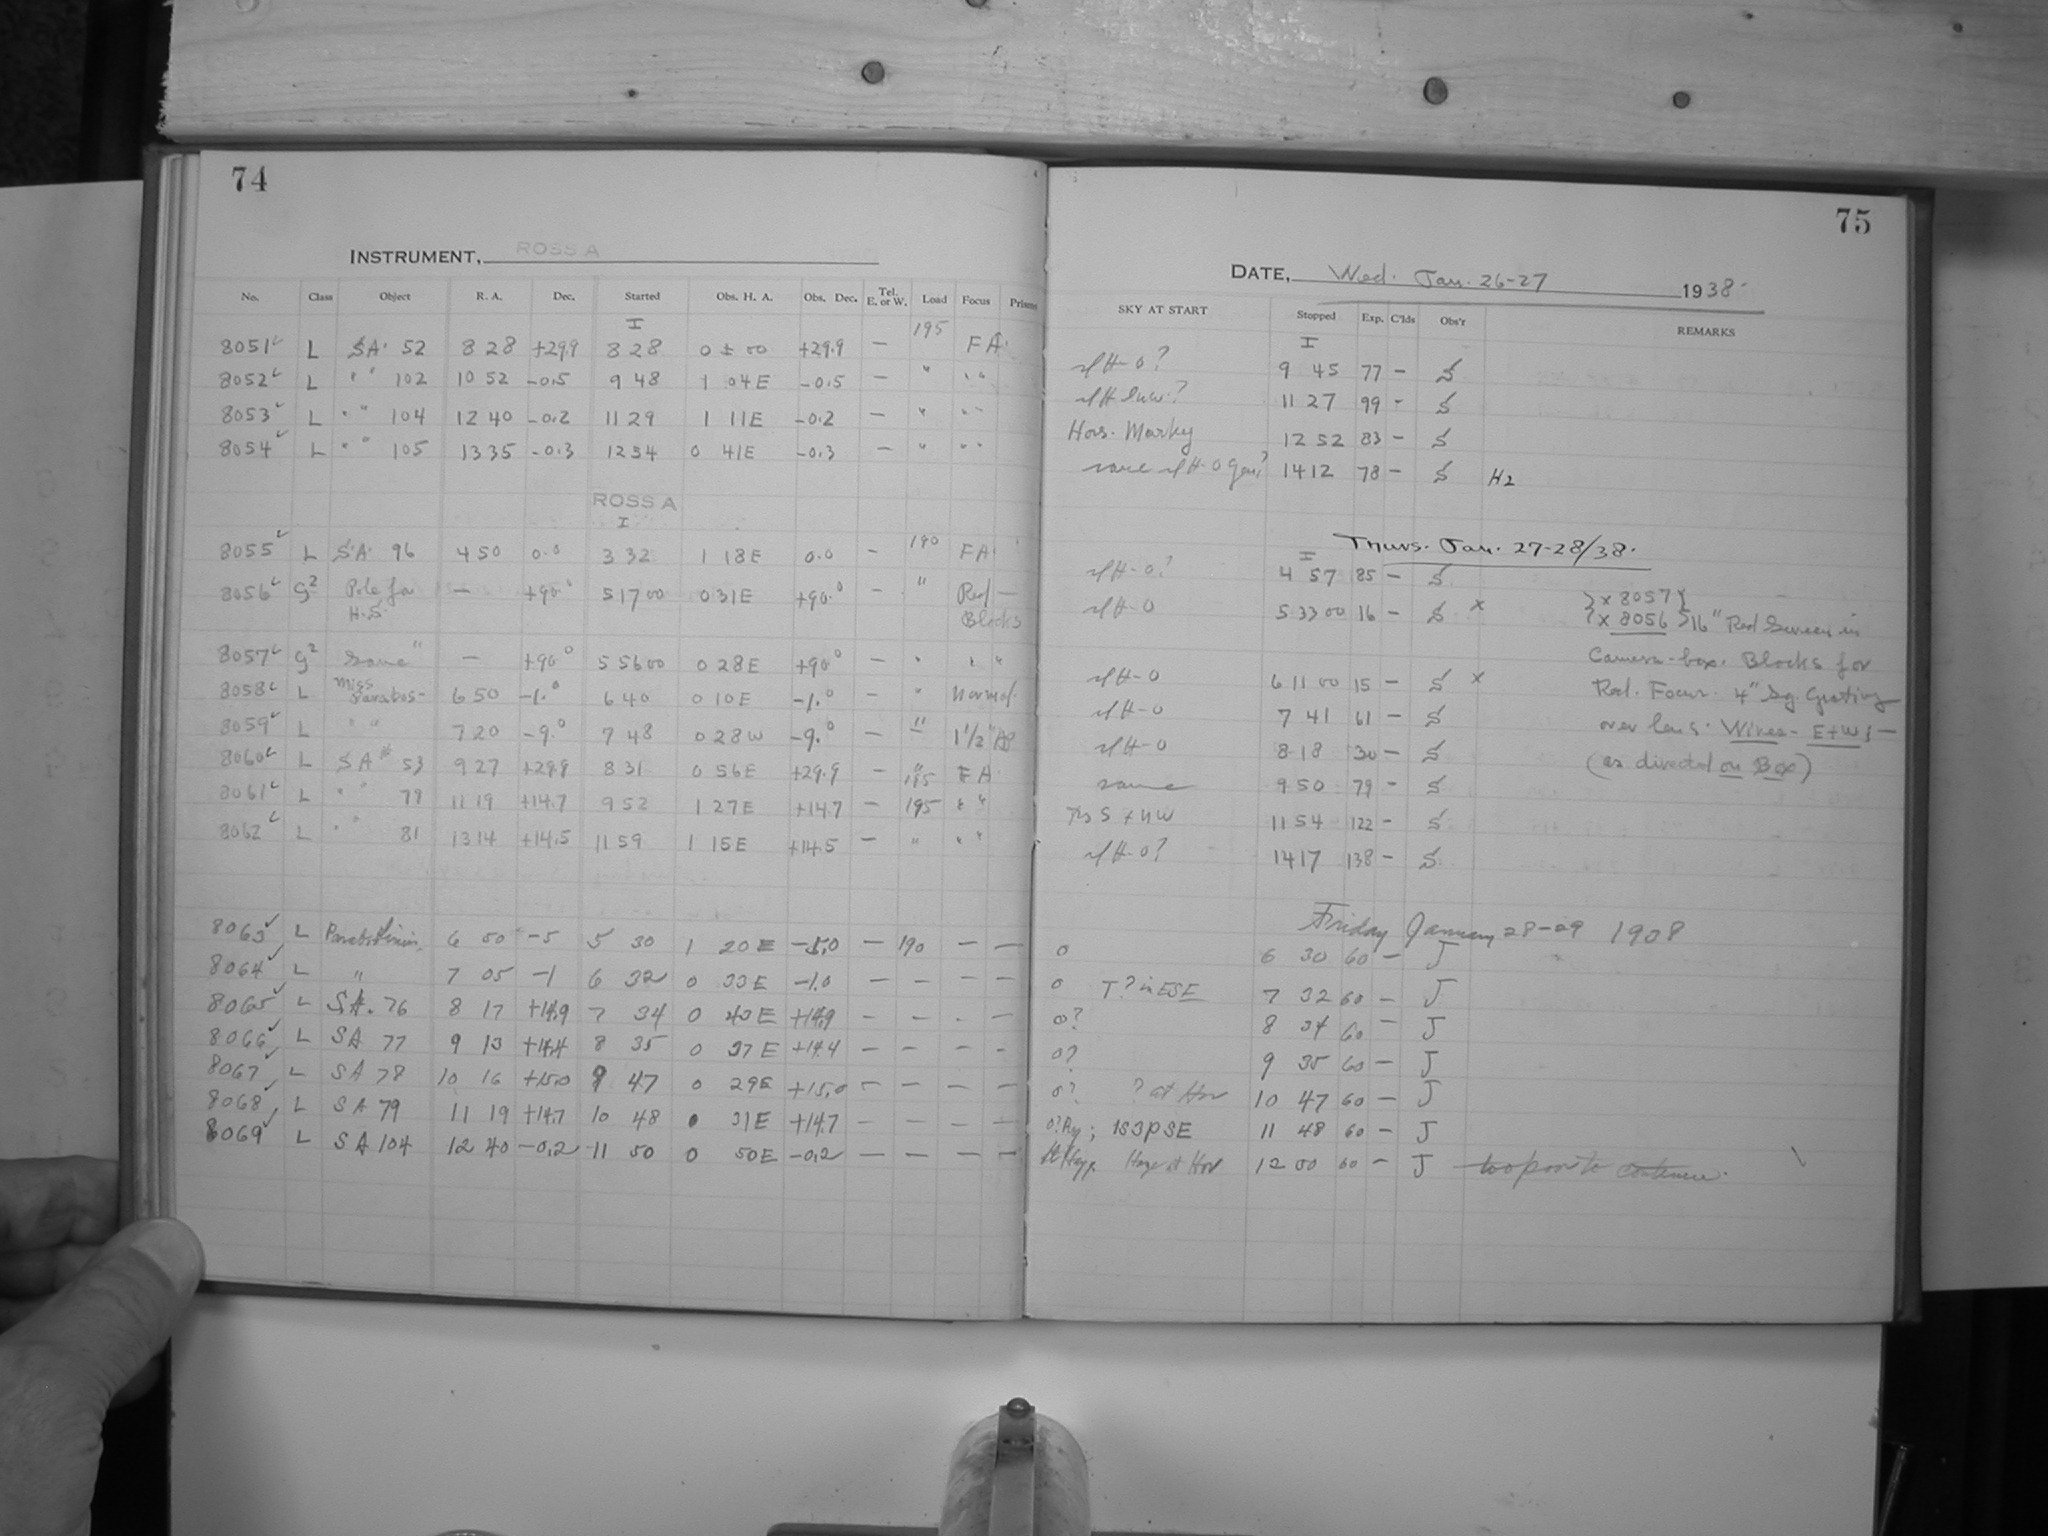 74
INSTRUMENT, ROSS A
No. Class Object R. A. Dec. Started Obs. H. A. Obs. Dec. Tel. E. or W. Load Focus Prisms
I 195
8051 L SA. 52 8 28 +29.9 8 28 0 ± 00 +29.9 — FA.
8052 L " " 102 10 52 -0.5 9 48 1 04E -0.5 — " " "
8053 L " " 104 12 40 -0.2 11 29 1 11E -0.2 — " " "
8054 L " " 105 13 35 -0.3 12 54 0 41E -0.3 — " " "
ROSS A
I
8055 L S.A. 96 4 50 0.0 3 32 1 18E 0.0 — 190 FA
8056 G2 Pole for H.S. — +90.° 5 17 00 0 31E +90.° — " Red — Blocks
8057 G2 Same " — +90° 5 56 00 0 28E +90° — " " "
8058 L Miss Parabos- 6 50 -1.° 6 40 0 10E -1.° — " Normal
8059 L " " 7 20 -9.° 7 48 0 28W -9.° — " 1 1/2" Ap
8060 L SA# 53 9 27 +29.9 8 31 0 56E +29.9 — 195 FA
8061 L " " 79 11 19 +14.7 9 52 1 27E +14.7 — 195 " "
8062 L " " 81 13 14 +14.5 11 59 1 15E +14.5 — " " "
8063 L 6 50 -5 5 30 1 20E -5.0 — 190 — —
8064 L " 7 05 -1 6 32 0 33E -1.0 — — — —
8065 L SA. 76 8 17 +14.9 7 34 0 43E +14.9 — — - —
8066 L SA 77 9 13 +14.4 8 35 0 37E +14.4 — — - -
8067 L SA 78 10 16 +15.0 9 47 0 29E +15.0 — — — —
8068 L SA 79 11 19 +14.7 10 48 0 31E +14.7 — — — —
8069 L SA 104 12 40 -0.2 11 50 0 50E -0.2 — — — —
75
DATE, Wed. Jan. 26-27 1938
SKY AT START Stopped Exp. C'lds Obs'r REMARKS
I
H-0? 9 45 77 - S
11 27 99 - S
Hors. Murky 12 52 83 - S
same H-0 14 12 78 - S H2
Thurs. Jan. 27-28/38.
I
H-0? 4 57 85 - S
H-0 5 33 00 16 - S x
x 8057
x 8056 16" Red Screen in
Camera-box. Blocks for
H-0 6 11 00 15 - S x Red. Focus. 4" Sq. Grating
H-0 7 41 61 - S over lens. Wires- E+W; —
H-0 8 18 30 - S (as directed on Box)
same 9 50 79 - S
S + NW 11 54 122 - S
H-0? 14 17 138 - S
Friday January 28-29 1938
0 6 30 60 - J
0 T? in ESE 7 32 60 - J
0? 8 34 60 - J
0? 9 35 60 - J
0? ? at Hor 10 47 60 - J
0? ; 1S3PSE 11 48 60 - J
Haze at Hor 12 50 60 - J too poor to continue.